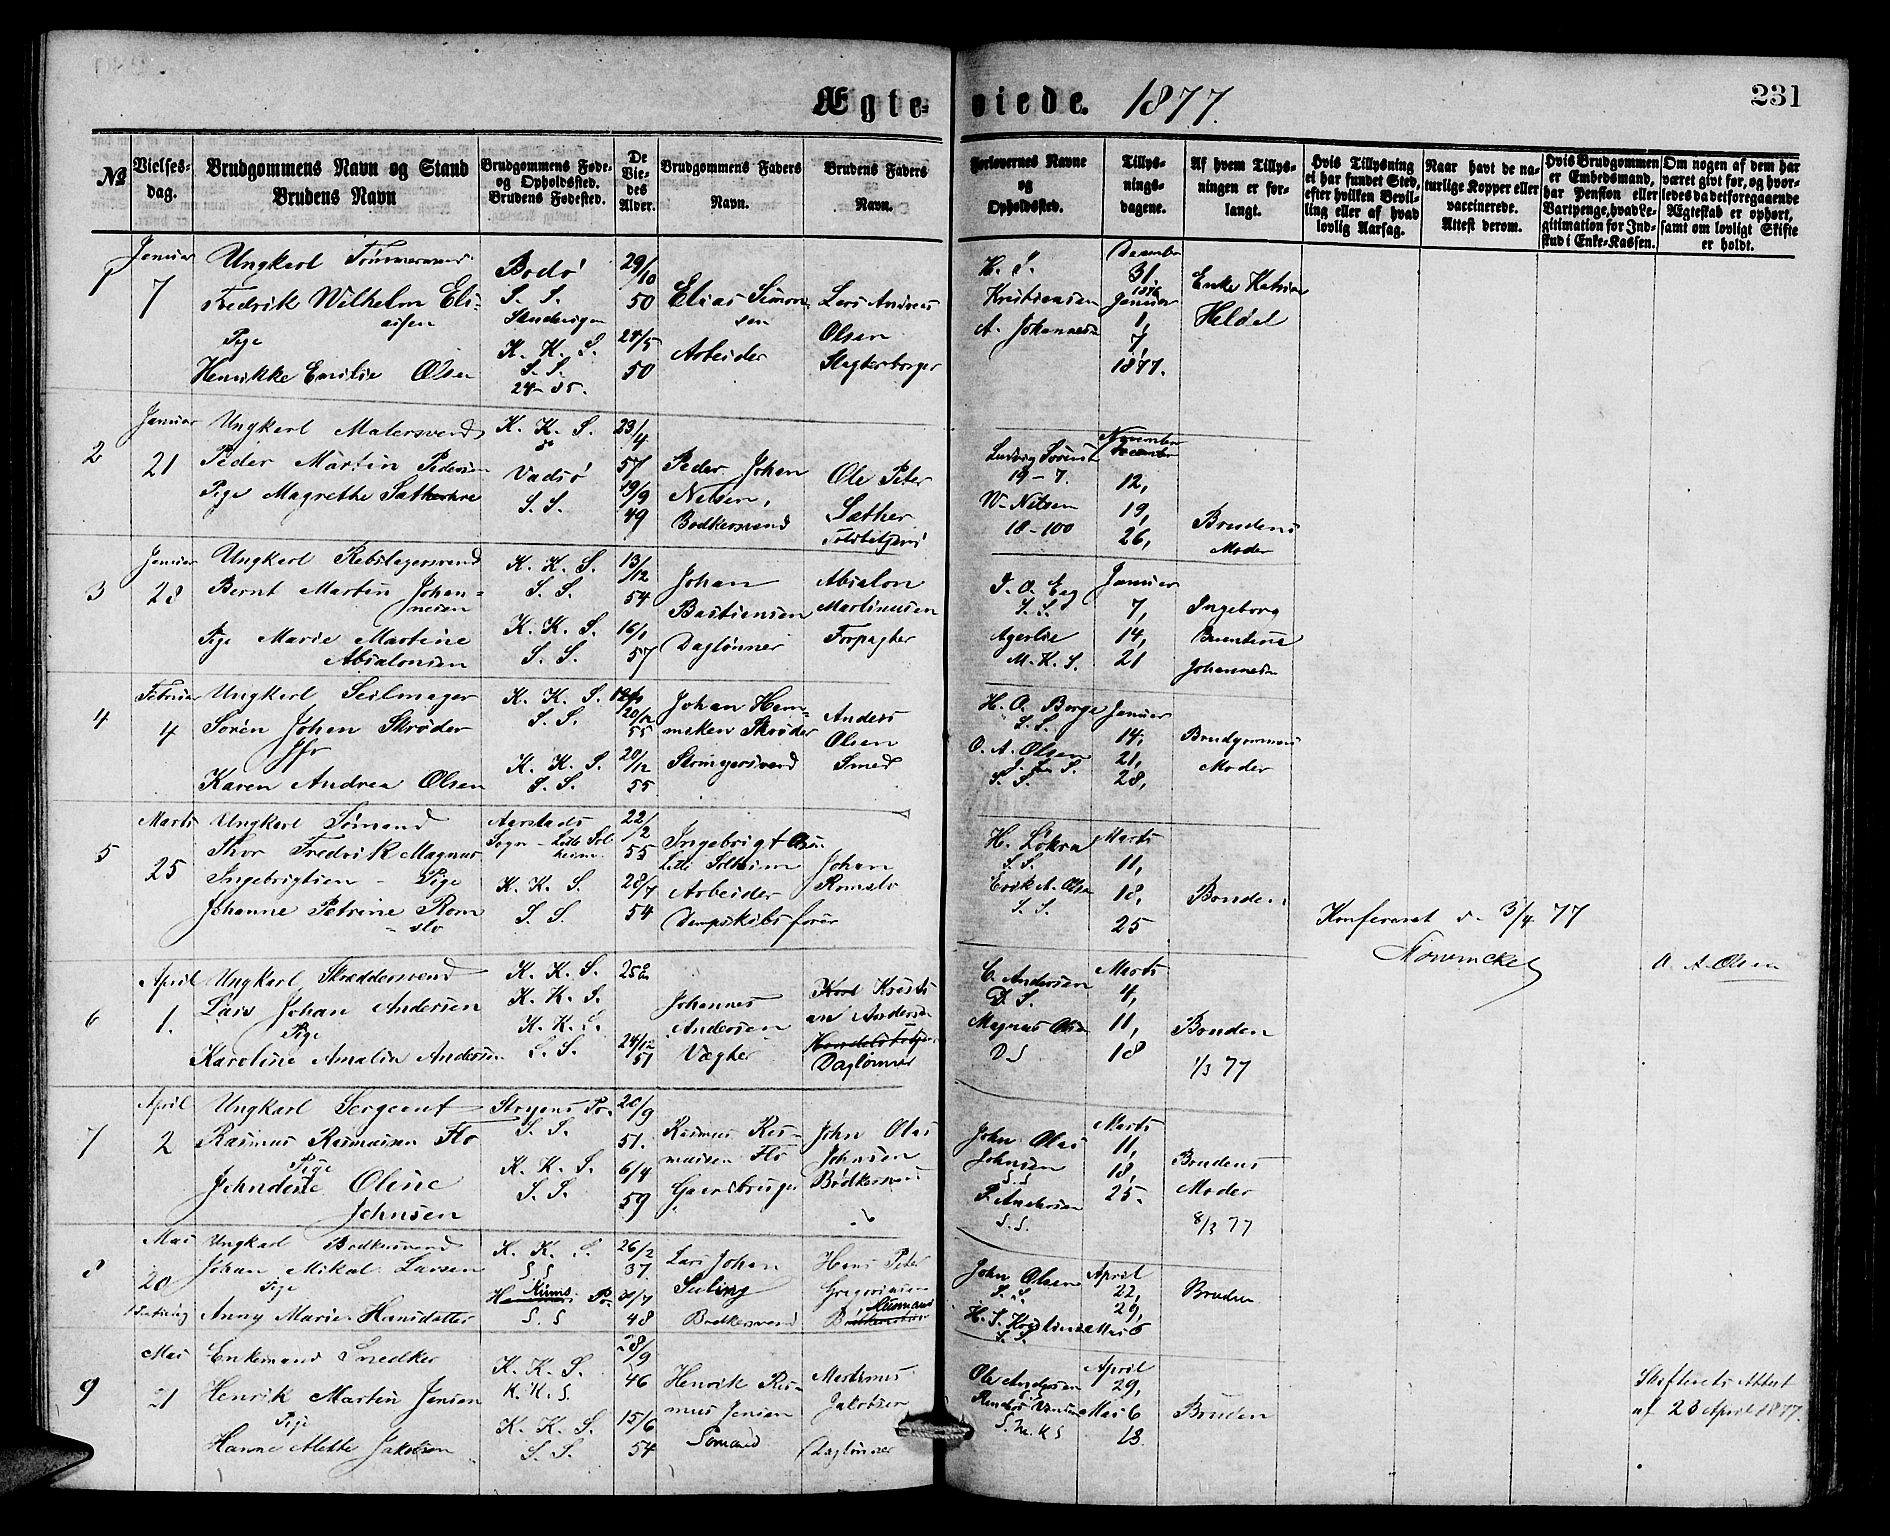 Ægte-viede. 1877.
231
№
Vielses-dag.
Brudgommens Navn og Stand
Brudens Navn
Brudgommens Føde- og Opholdssted.
Brudens Fødested.
De Vie-des Alder.
Brudgommens Faders Navn.
Brudens Faders Navn.
Forlovernes Navne og Opholdssted.
Tillys-nings-dagene.
Af hvem Tillys-ningen er for-langt.
Hvis Tillysning ei har fundet Sted, efter hvilken Bevil-ling eller af hvad lovlig Aarsag.
Naar havt de na-turlige Kopper eller vaccinerede. Attest derom.
Hvis Brudgommen er Embedsmand, har Pension eller Vartpenge, hvad Le-gitimation for Ind-skud i Enke-Kassen.
Om nogen af dem har været givt før, og hvor-ledes da det foregaaende Ægteskab er ophørt, samt om lovligt Skifte er holdt.
1
Januar
7
Ungkarl Tømmermand
Fredrik Wilhelm Eli-
asen
Pige
Henrikke Emilie Olsen
Bodø
S. S.
Sandvigen
K. K. S.
S. S.
24-85.
29/10
50
24/5
50
Elias Simon-
sen
Arbeider
Lars Andreas
Olsen
Slagterborger
H. S.
Kristiansen
A. Johannesen
December
31,
1876
Januar
1,
7,
1877.
Enke Katrine
Heldal
2
Januar
21
Ungkarl Malersvend
Peder Martin Pedersen
Pige Magrethe Sæther
K. K. S.
Vadsø
S. S.
23/4
57
19/9
49
Peder Johan
Nelsen,
Bødkersvend
Ole Peter
Sæther
Ludvig Sørensen
19-7.
W. Nilsen
18-100
November
December
12,
19,
26,
Brudens
Moder
3
Januar
28
Ungkarl Rebslagersvend
Bernt Martin Johan-
nesen
Pige Marie Martine
Absalonsen
K. K. S.
S. S.
K. K. S.
S. S.
13/12
54
16/1
57
Johan
Bastiensen
Daglønner
Absalon
Martinusen
Forpagter
J. O. Eeg
S. S.
Agerlie
M. K. S.
Januar
7,
14,
21
Ingeborg
Johannesen
4
Februar
4
Ungkarl Seilmager
Søren Johan Skrøder
Jfr
Karen Andrea Olsen
K. K. S.
S. S.
K. K. S.
S. S.
20/12
55
20/12
55
Johan Hen-
Skrøder
Anders
Olsen
Smed
H. O. Borge
S. S.
O. A. Olsen
S. S.
Januar
14,
21,
28,
Brudgommens
Moder
5
Marts
25
Ungkarl Sømand
Thor Fredrik Magnus
Ingebrigtsen - Pige
Johanne Petrine Rom-
slo
Aarstads
Sogn - Lille Sol-
heim
K. K. S.
S. S.
22/2
55
28/7
54
Ingebrigt Olsen
Lille Solheim
Arbeider
Dampskibsfører
Johan
Romslo
H. Løkra
S. S.
Erik A. Olsen
S. S.
Marts
11,
18,
25
Bruden
Konfereret d. 3/4 77
O. A. Olsen
6
April
1.
Ungkarl Skræddersvend
Lars Johan Andersen
Pige
Karoline Amalia Andersen
K. K. S.
K. K. S.
K. K. S.
S. S.
24/12
51
Johannes
Andersen
Vægter
Kristi-
an Andersen
Daglønner
C. Andersen
D. S.
Magnus Olsen
D. S
Marts
4,
11,
18
Bruden
1/3 77
7
April
2
Ungkarl Sergeant
Rasmus Rasmusen Flo
Pige
Johndine Oline
Johnsen
Stryens Pr.
S. S.
K. K. S.
S. S.
20/9
51.
6/4
59
Rasmus Ras-
musen Flo
Gaardbruger
John Olai
Johnsen
John Olai
Johnsen
S. S
P. Andersen
S. S.
Marts
11,
18,
25.
Brudens
Moder
8/3 77
8
Mai
20
Ungkarl Bødkersvend
Johan Mikal Larsen
Pige
Anny Marie Hansdatter
K. K. S.
S S
S. S
26/2
37.
48
Lars Johan
Bødkersvend
Hans Peter
Gregoriusen
John Olsen
S. S.
April
22,
29,
Mai 6
Bruden
9
Mai
21
Enkemand Snedker
Henrik Martin Jensen
Pige
Hanne Mette Jakobsen
K. K. S.
K. K. S.
K. K. S.
S. S.
28/9
46
15/6
54
Henrik Ras-
mus Jensen
Sømand
Martinus
Jakobsen
Daglønner
Ole Andersen
April
29,
Mai 6
13
Bruden
Skifterets Attest
af 23 April 1877.